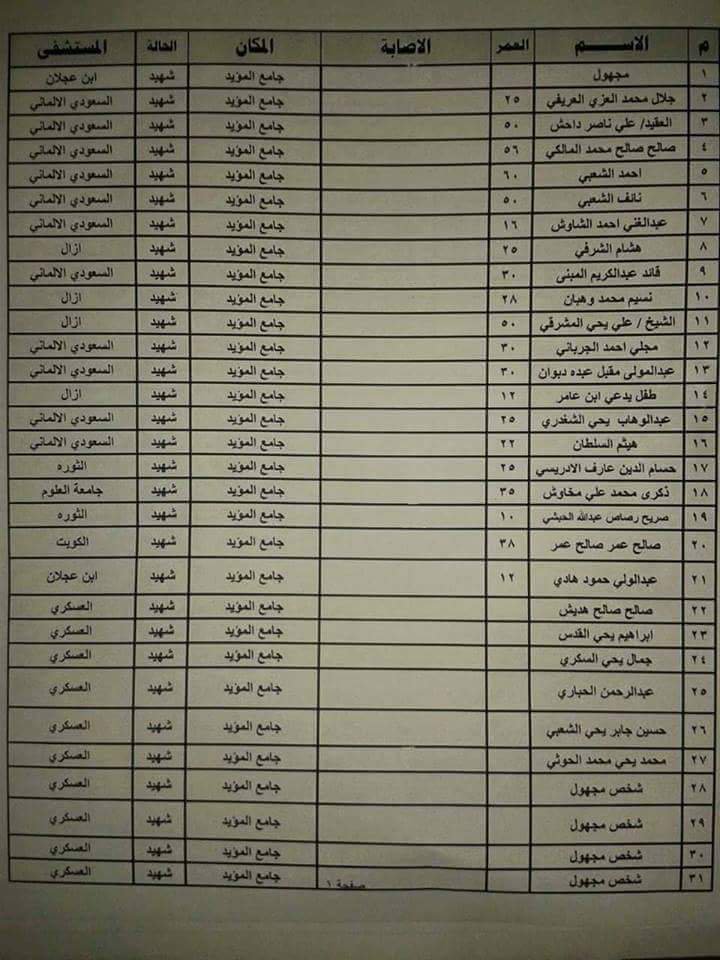 م الاســـم العمر الاصابة المكان الحالة المستشفى
١ مجهول جامع المؤيد شهيد ابن عجلان
٢ جلال محمد العزي العريفي ٢٥ جامع المؤيد شهيد السعودي الالماني
٣ العقيد/ علي ناصر داحش ٥٠ جامع المؤيد شهيد السعودي الالماني
٤ صالح صالح محمد المالكي ٥٦ جامع المؤيد شهيد السعودي الالماني
٥ احمد الشعبي ٦٠ جامع المؤيد شهيد السعودي الالماني
٦ نائف الشعبي ٥٠ جامع المؤيد شهيد السعودي الالماني
٧ عبدالغني احمد الشاوش ١٦ جامع المؤيد شهيد السعودي الالماني
٨ هشام الشرفي ٢٥ جامع المؤيد شهيد ازال
٩ قائد عبدالكريم المبنى ٣٠ جامع المؤيد شهيد السعودي الالماني
١٠ نسيم محمد وهبان ٢٨ جامع المؤيد شهيد ازال
١١ الشيخ / علي يحي المشرقي ٥٠ جامع المؤيد شهيد ازال
١٢ مجلي احمد الجرباني ٣٠ جامع المؤيد شهيد السعودي الالماني
١٣ عبدالمولى مقبل عبده دبوان ٣٠ جامع المؤيد شهيد السعودي الالماني
١٤ طفل يدعي ابن عامر ١٢ جامع المؤيد شهيد ازال
١٥ عبدالوهاب يحي الشغدري ٢٥ جامع المؤيد شهيد السعودي الالماني
١٦ هيثم السلطان ٢٢ جامع المؤيد شهيد السعودي الالماني
١٧ حسام الدين عارف الادريسي ٢٥ جامع المؤيد شهيد الثوره
١٨ ذكرى محمد علي مخاوش ٣٥ جامع المؤيد شهيد جامعة العلوم
١٩ صريح رصاص عبدالله الحبشي ١٠ جامع المؤيد شهيد الثوره
٢٠ صالح عمر صالح عمر ٣٨ جامع المؤيد شهيد الكويت
٢١ عبدالولي حمود هادي ١٢ جامع المؤيد شهيد ابن عجلان
٢٢ صالح صالح هديش جامع المؤيد شهيد العسكري
٢٣ ابراهيم يحي القدس جامع المؤيد شهيد العسكري
٢٤ جمال يحي السكري جامع المؤيد شهيد العسكري
٢٥ عبدالرحمن الحباري جامع المؤيد شهيد العسكري
٢٦ حسين جابر يحي الشعبي جامع المؤيد شهيد العسكري
٢٧ محمد يحي محمد الحوثي جامع المؤيد شهيد العسكري
٢٨ شخص مجهول جامع المؤيد شهيد العسكري
٢٩ شخص مجهول جامع المؤيد شهيد العسكري
٣٠ شخص مجهول جامع المؤيد شهيد العسكري
٣١ شخص مجهول جامع المؤيد شهيد العسكري
صفحة ١